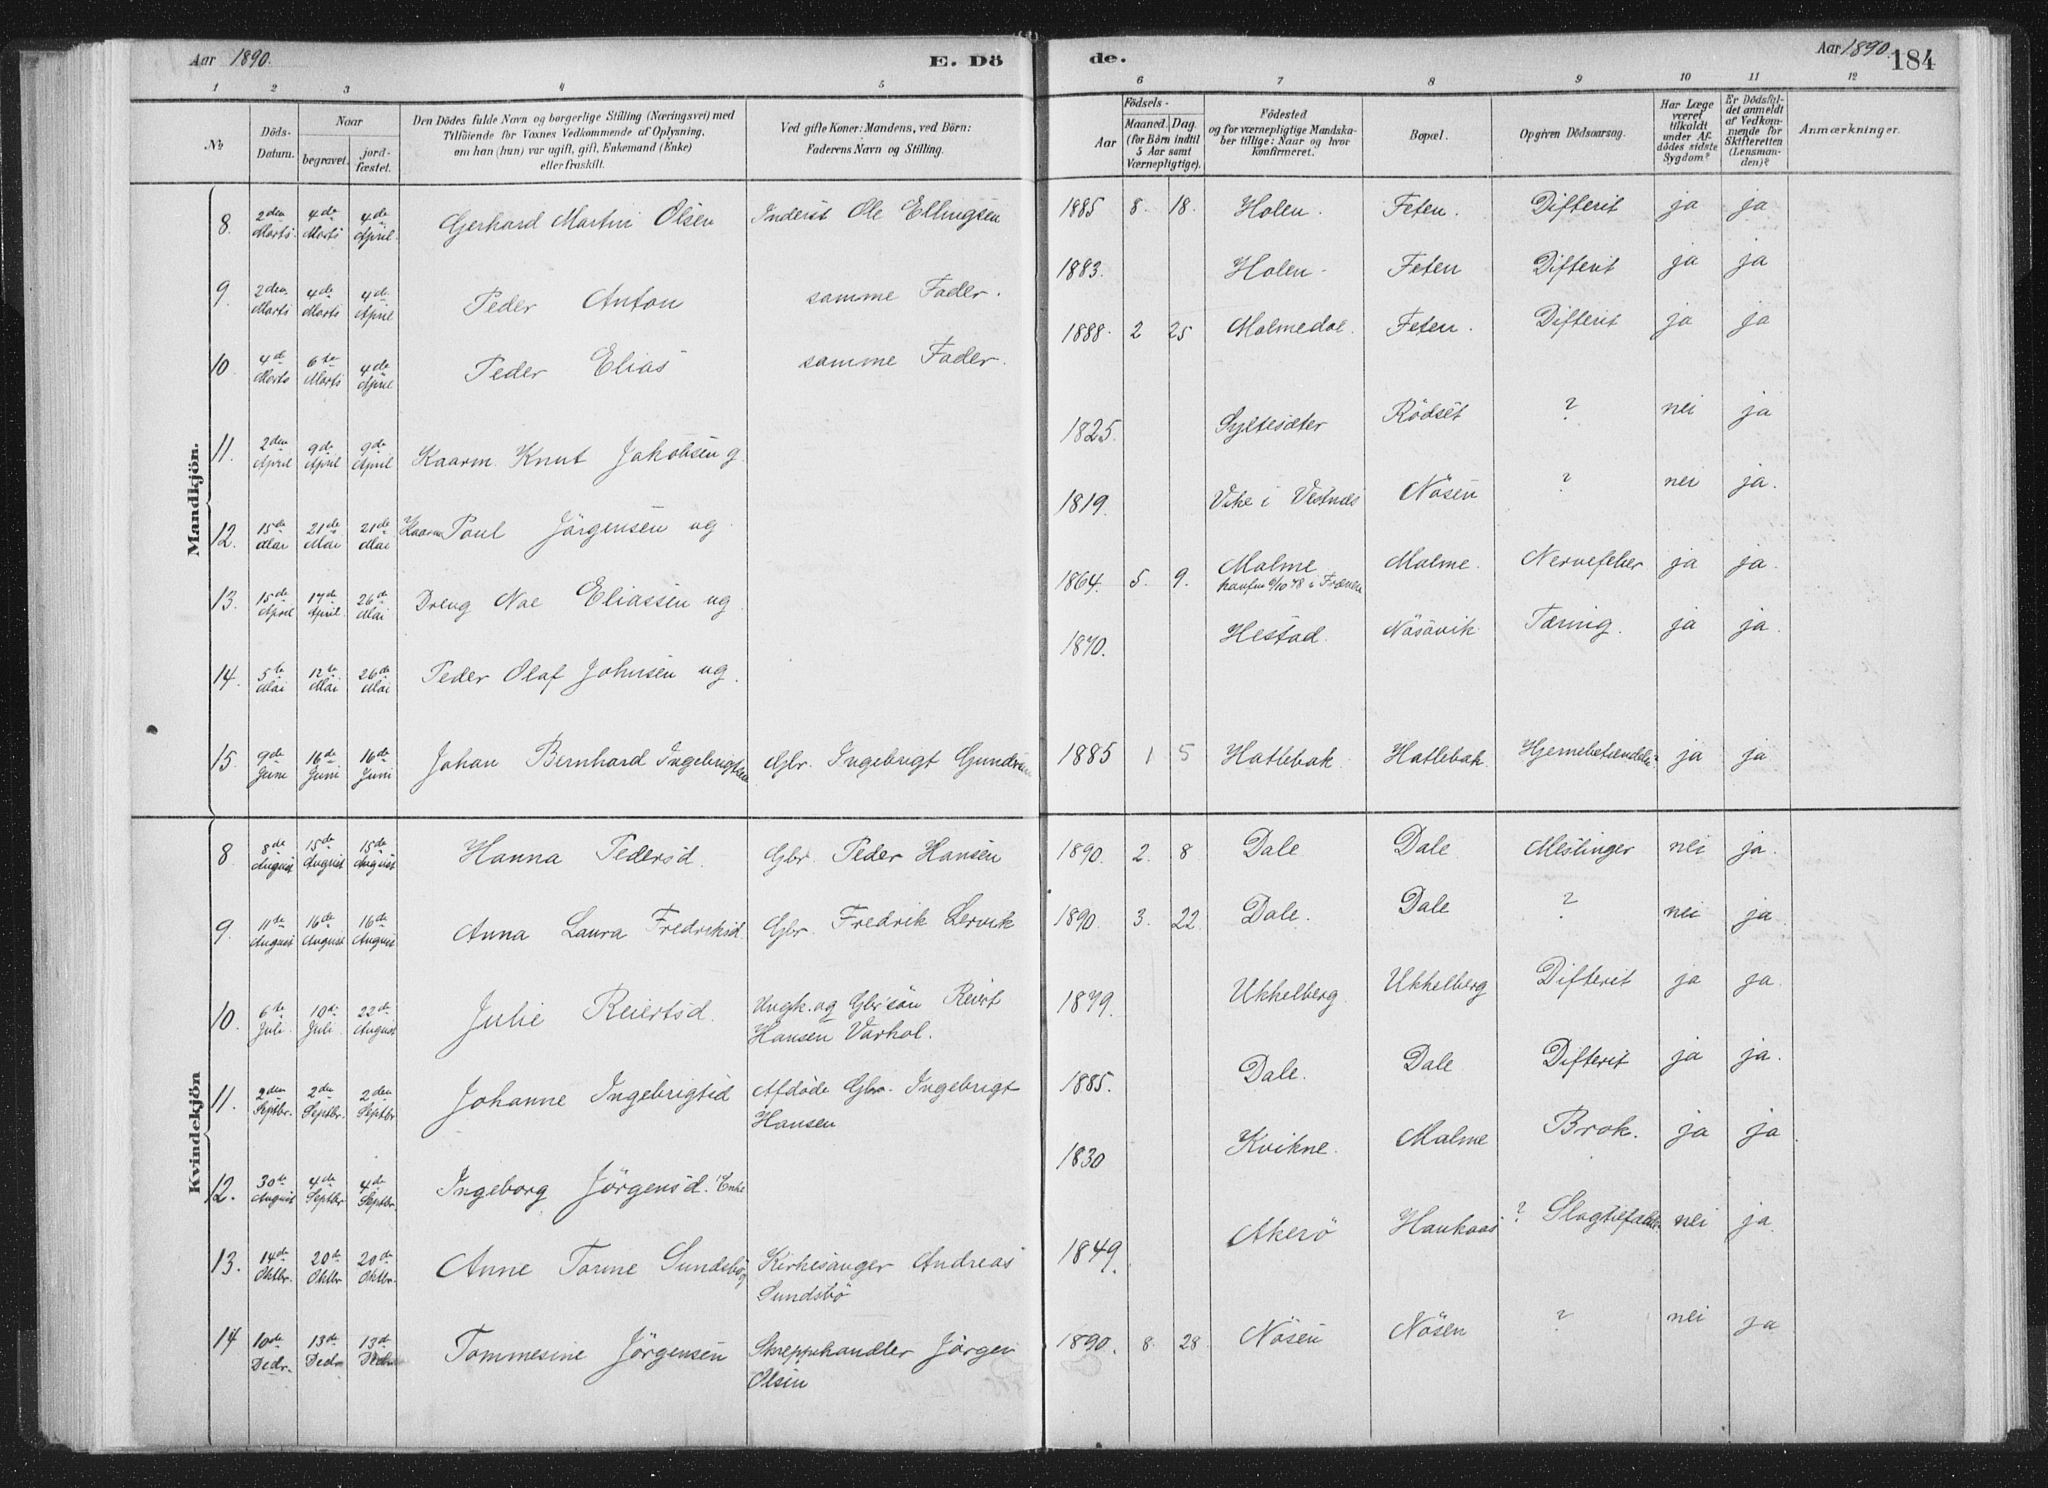 Aar 1890.
E. Dö
de.
Aar 1890.
184
1 2 3 4 5 6 7 8 9 10 11 12
No
Döds-
Datum.
Naar
begravet.
jord-
fæstet.
Den Dödes fulde Navn og borgerlige Stilling (Næringsvei) med
Tilföiende for Voxnes Vedkommende af Oplysning,
om han (hun) var ugift, gift, Enkemand (Enke)
eller fraskilt.
Ved gifte Koner: Mandens, ved Börn:
Faderens Navn og Stilling.
Födsels-
Aar
Maaned. Dag.
(for Börn indtil
5 Aar samt
Værnepligtige).
Födested
og for værnepligtige Mandska-
ber tillige: Naar og hvor
konfirmeret.
Bopæl.
Opgiven Dödsaarsag.
Har Læge
været
tilkaldt
under Af-
dödes sidste
Sygdom?
Er Dödsfal-
det anmeldt
af Vedkom-
mende for
Skifteretten
(Lensman-
den)?
Anmærkninger.
Mandkjön.
8. 2den Marts. 4de Marts 4de April. Gerhard Martin Olsen Inderst Ole Ellingsen 1885 8. 18. Holen. Feten. Difterit ja ja
9. 2den Marts 4de Marts 4de April Peder Anton samme Fader. 1883. Holen. Feten Difterit ja ja
10. 4de Marts 6te Marts 4de April Peder Elias samme Fader. 1888. 2 25 Malmedal. Feten. Difterit ja ja
11. 2den April 9de April 9de April Kaarm. Knut Jakobsen g. 1825. Syltesæter Rödset ? nei ja
12. 15de Mai 21de Mai 21de Mai Kaarm Poul Jörgensen ug. 1819. Vike i Vestnæs Nösen ? nei ja.
13. 15de April 17de April. 26de Mai Dreng Noe Eliassen ug. 1864. 5. 9. Malme Malme. Nervefeber ja ja.
konfm 6/10 78 i Frænen
14. 5te Mai 12te Mai 26de Mai Peder Olaf Johnsen ug. 1870. Hestad. Nösavik Tæring. ja ja.
15. 9de Juni 16de Juni 16de Juni Johan Bernhard Ingebrigtsen Gbr. Ingebrigt Gundersen 1885 1 5 Hatlebak Hatlebak Hjernebetændelse ja ja
Kvindekjön
8. 8de August 15de August 15de August Hanna Pedersd. Gbr. Peder Hansen 1890. 2. 8 Dale Dale Meslinger nei ja.
9. 11te August 16de August 16de August Anna Laura Fredriksd. Gbr. Fredrik Lervik 1890. 3. 22. Dale. Dale ? nei ja.
10. 6te Juli. 10de Juli. 22de August Julie Reiertsd. Ungk. og Gbrsön Reiert
Hansen Varhol. 1879. Ukkelberg. Ukkelberg Difterit ja ja.
11. 2den Septbr. 2den Septbr. 2den Septbr Johanne Ingebrigtsd Afdöde Gbr. Ingebrigt
Hansen 1885. Dale. Dale Difterit ja ja.
12. 30te August 4de Septbr 4de Septbr. Ingeborg Jörgensd. Enke 1830 Kvikne. Malme Brok. ja ja.
13. 14de Oktbr. 20de Oktbr 20de Oktbr. Anne Tomine Sundsbö Kirkesanger Andreas
Sundsbö 1849. Akerö Haukaas ? Slagtilfælde nei ja.
14 10de Decbr. 13de Decbr 13de Decbr Tommesine Jörgensen Skreppehandler Jörgen
Olsen 1890. 8. 28. Nösen Nösen ? nei ja